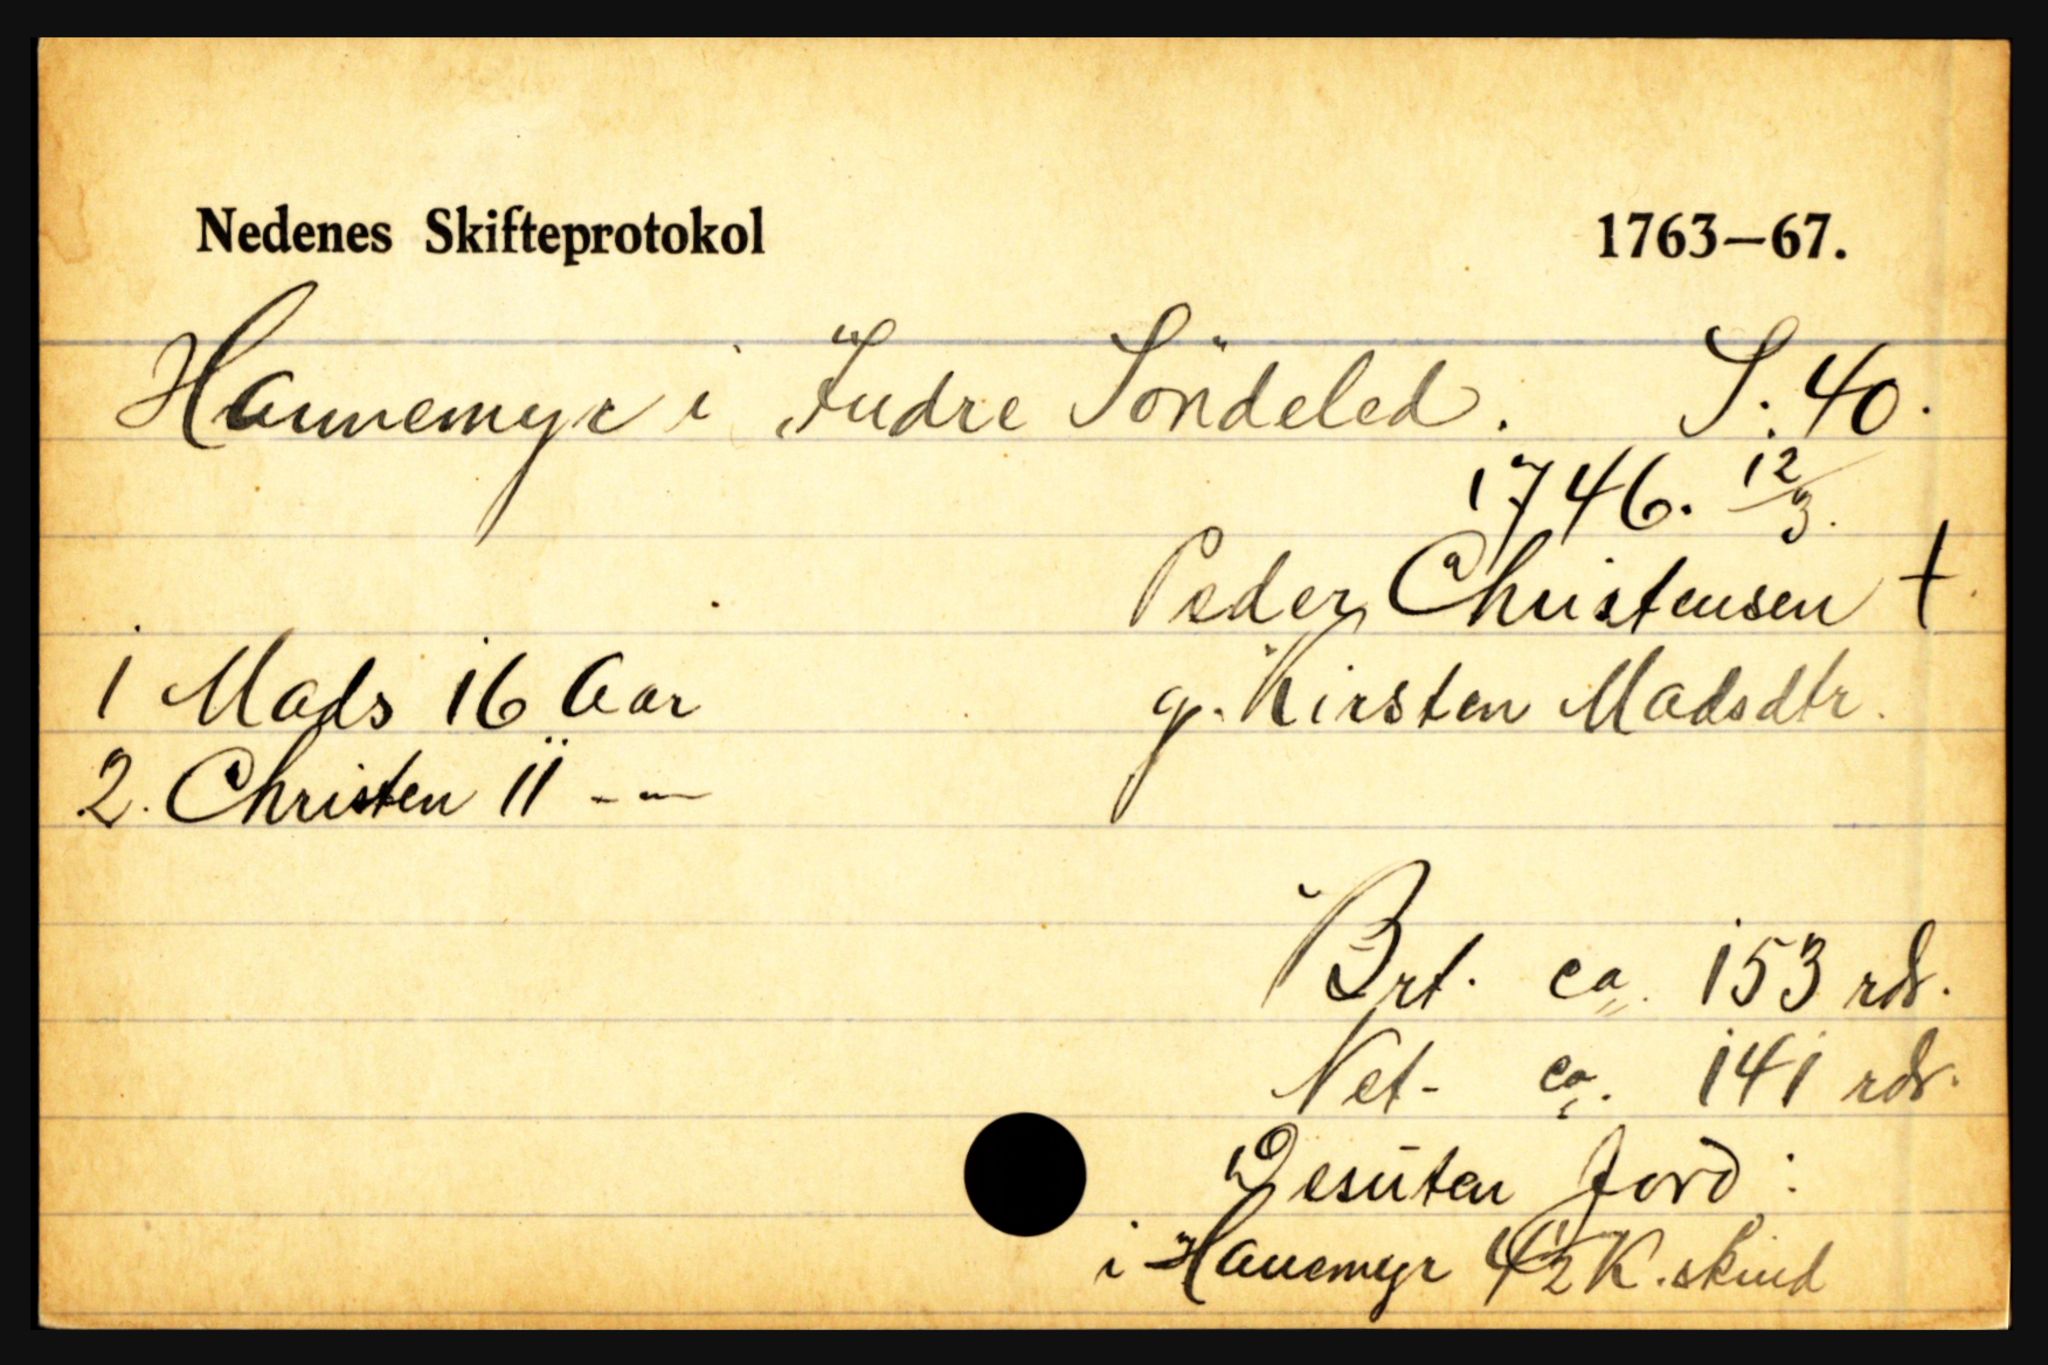 Nedenes Skifteprotokol 1763—67.
Hannemyr i Indre Söndeled. S. 40.
1746. 12/3.
Peder Christensen †
1 Mads 16 Aar g. Kirsten Madsdtr.
2. Christen 11 - —
Brt. ca. 153 rdr.
Net- ca. 141 rdr.
Desuten Jord:
i Hanemyr 4 1/2 K. skind